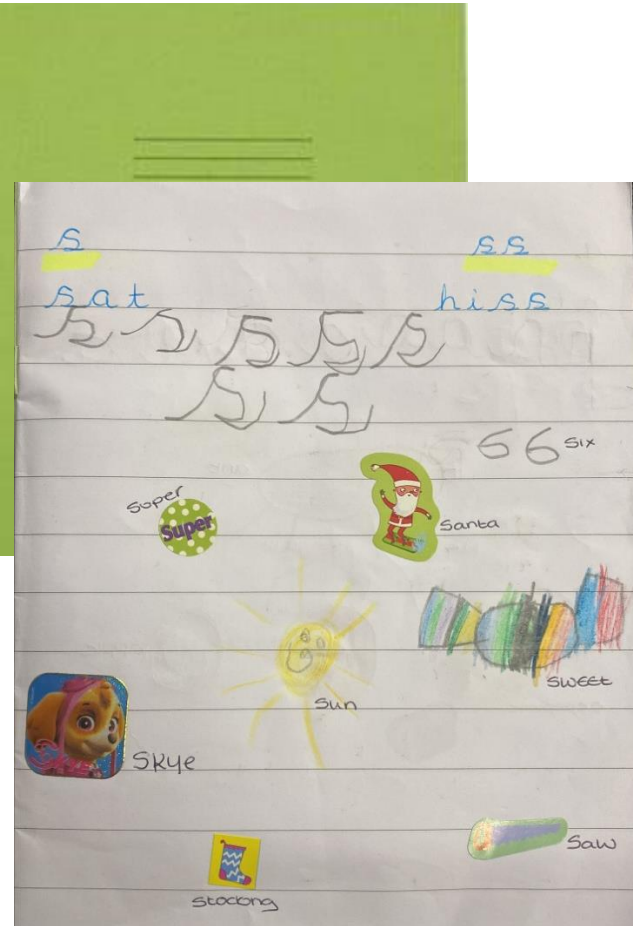 s ss
sat hiss
s s s s s
s s
6 6 six
super
Super
Santa
sweet
sun
SKYE
Skye
saw
stocong